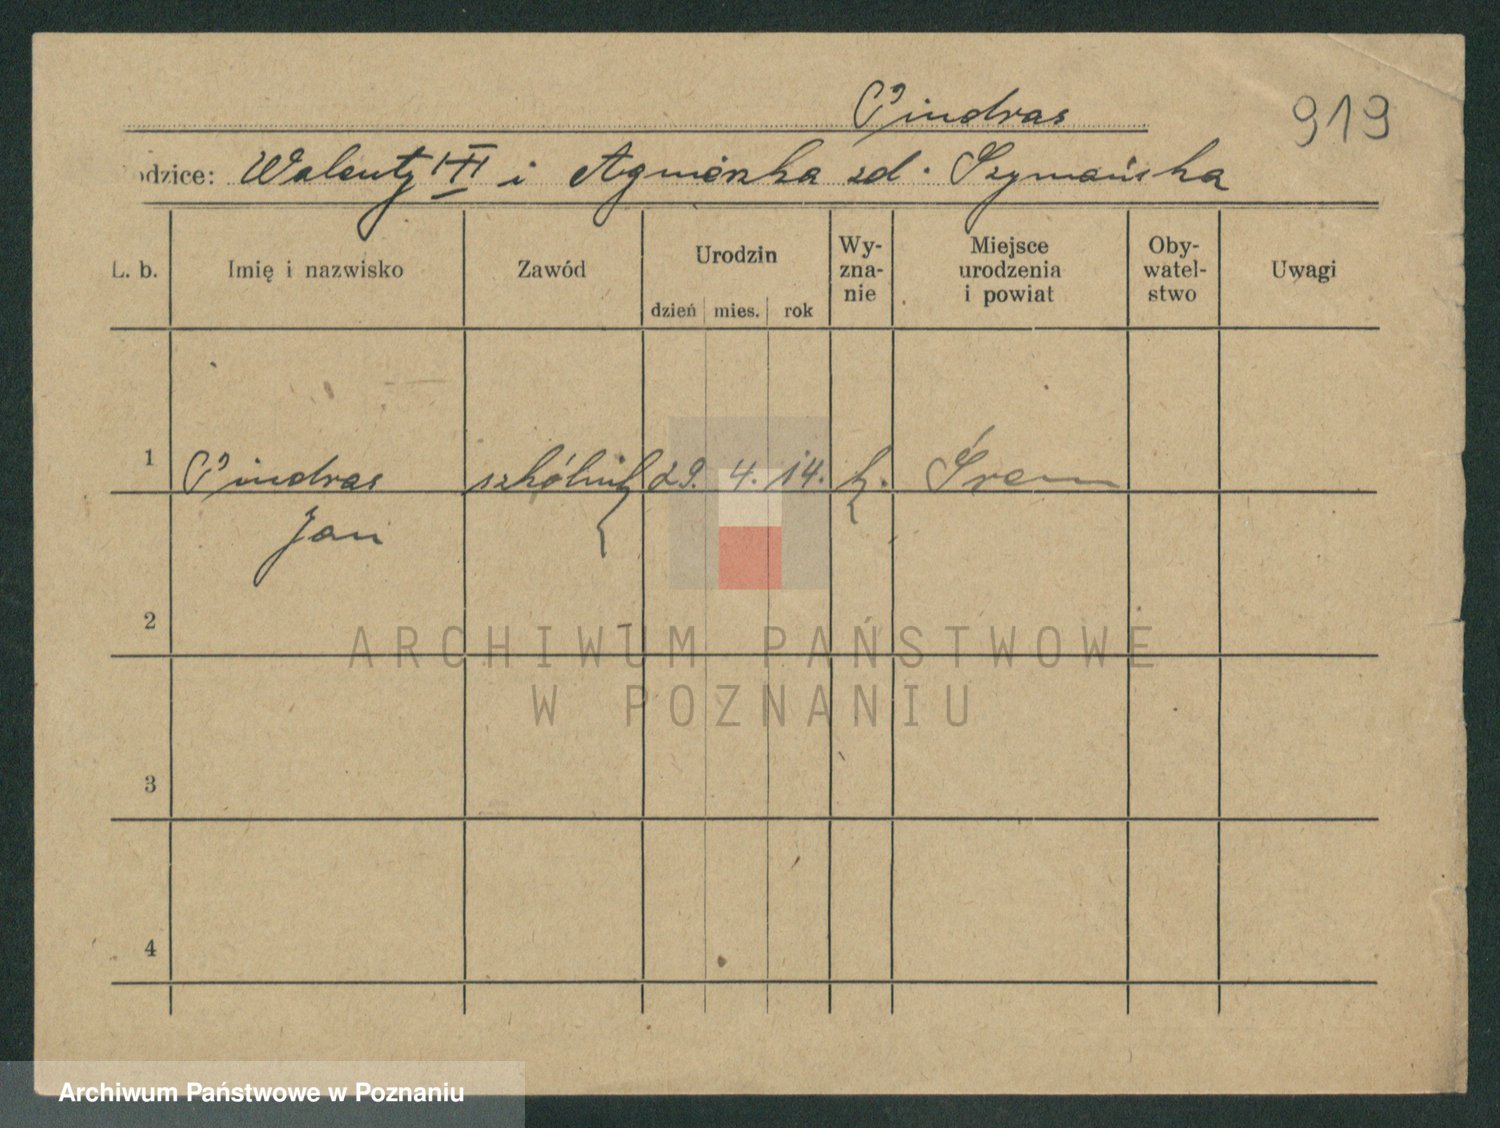 Pindras
919
odzice: Walenty III i Agnieszka zd. Szymańska
L. b. Imię i nazwisko Zawód Urodzin dzień mies. rok Wy-
zna-
nie Miejsce
urodzenia
i powiat Oby-
watel-
stwo Uwagi
1 Pindras szkólnik 29. 4. 14. k. Śrem
Jan
2
ARCHIWUM PAŃSTWOWE
W POZNANIU
3
4
Archiwum Państwowe w Poznaniu